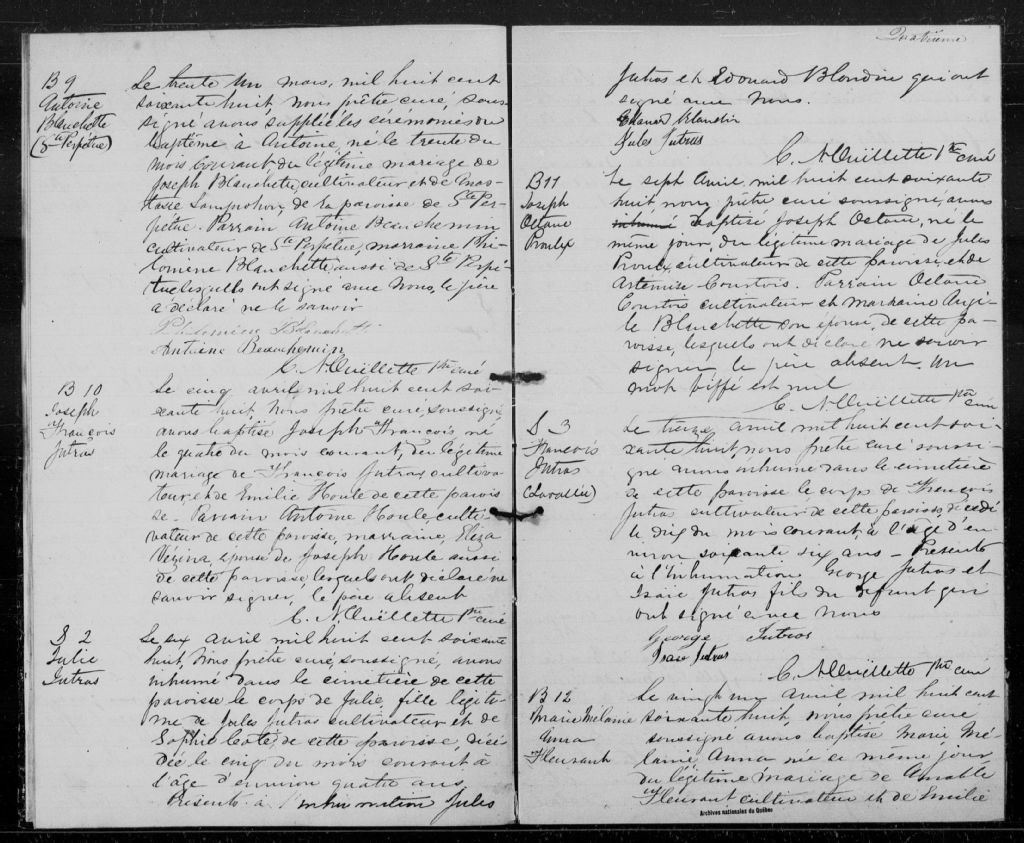 B 9
Antoine
Blanchette
(Ste Perpétue)
Le trente un mars, mil huit cent
soixante huit, Nous prêtre curé, sous-
signé avons suppléé les cérémonies du
baptême à Antoine, né le trente du
mois courant du légitime mariage de
Joseph Blanchette, cultivateur et de Anas-
tasie de la paroisse de Ste Per-
pétue. Parrain Antoine Beauchemin
cultivateur de Ste Perpétue, marraine Phi-
lomène Blanchette, aussi de Ste Perpé-
tue lesquels ont signé avec Nous, le père
a déclaré ne le savoir
Philomène Blanchette
Antoine Beauchemin
C. N. Ouillette Ptre curé
B 10
Joseph
François
Jutras
Le cinq avril mil huit cent soi-
xante huit, Nous prêtre curé, soussigné,
avons baptisé Joseph François, né
le quatre du mois courant, du légitime
mariage de François Jutras, cultiva-
teur et de Emilie Houle de cette parois
se. Parrain Antoine Houle, culti-
vateur de cette paroisse, marraine, Eliza
Vézina, épouse de Joseph Houle aussi
de cette paroisse, lesquels ont déclaré ne
savoir signer, le père absent
C. N. Ouillette Ptre curé
S 2
Julie
Jutras
Le six avril mil huit cent soixante
huit, Nous prêtre curé, soussigné, avons
inhumé dans le cimetière de cette
paroisse le corps de Julie, fille légiti-
me de Jules Jutras cultivateur et de
Sophie Coté, de cette paroisse, décé-
dée le cinq du mois courant à
l'âge d'environ quatre ans
Présents à l'inhumation Jules
Quatrième
Jutras et Edouard Blondin qui ont
signé avec Nous.
Edouard Blondin
Jules Jutras
C. N. Ouillette Ptre curé
B 11
Joseph
Octave
Proulx
Le sept Avril mil huit cent soixante
huit nous, prêtre curé soussigné, avons
inhumé baptisé Joseph Octave, né le
même jour, du légitime mariage de Jules
Proulx, cultivateur de cette paroisse, et de
Artemise Courtois. Parrain Octave
Courtois cultivateur et marraine Angè-
le Blanchette son épouse, de cette pa-
roisse, lesquels ont déclaré ne savoir
signer, le père absent. Un
mot biffé est nul
C. N. Ouillette Ptre curé
S 3
François
Jutras
(Lavallée)
Le treize avril mil huit cent soi-
xante huit, nous prêtre curé soussi-
gné avons inhumé dans le cimetière
de cette paroisse le corps de François
Jutras cultivateur de cette paroisse, décédé
le dix du mois courant, à l'âge d'en-
viron soixante six ans - Présents
à l'inhumation George Jutras et
Isaie Jutras fils du défunt qui
ont signé avec Nous
George Jutras
Isaie Jutras
C. N. Ouillette Ptre curé
B 12
Marie Mélanie
Anna
Fleurant
Le vingt un avril mil huit cent
soixante huit, nous prêtre curé
soussigné avons baptisé Marie Mé-
lanie Anna née ce même jour,
du légitime mariage de
Fleurant cultivateur et de Emilie
Archives nationales du Québec